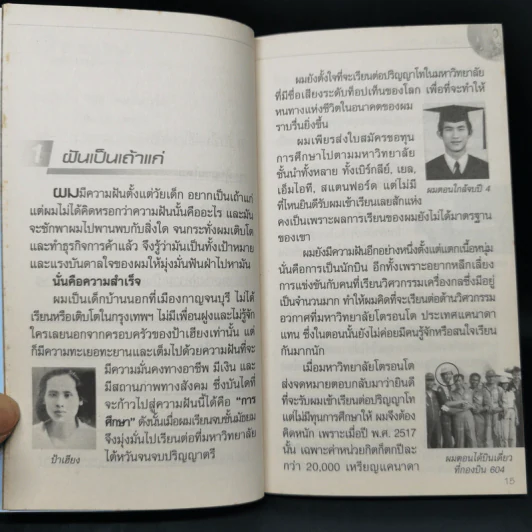 1 ฝันเป็นเถ้าแก่
ผมมีความฝันตั้งแต่วัยเด็ก อยากเป็นเถ้าแก่
แต่ผมไม่ได้คิดหรอกว่าความฝันนั้นคืออะไร และมัน
จะชักพาผมไปพานพบกับสิ่งใด จนกระทั่งผมเติบโต
และทำธุรกิจการค้าแล้ว จึงรู้ว่ามันเป็นทั้งเป้าหมาย
และแรงบันดาลใจของผมให้มุ่งมั่นฟันฝ่าไปหามัน
นั่นคือความสำเร็จ
ผมเป็นเด็กบ้านนอกที่เมืองกาญจนบุรี ไม่ได้
เรียนหรือเติบโตในกรุงเทพฯ ไม่มีเพื่อนฝูงและไม่รู้จัก
ใครเลยนอกจากครอบครัวของป้าเฮียงเท่านั้น แต่
ก็มีความทะเยอทะยานและเต็มไปด้วยความฝันที่จะ
มีความมั่นคงทางอาชีพ มีเงิน และ
มีสถานภาพทางสังคม ซึ่งบันไดที่
จะก้าวไปสู่ความฝันนี้ได้คือ "การ
ศึกษา" ดังนั้นเมื่อผมเรียนจบชั้นมัธยม
จึงมุ่งมั่นไปเรียนต่อที่มหาวิทยาลัย
ไต้หวันจนจบปริญญาตรี
ป้าเฮียง
ผมยังตั้งใจที่จะเรียนต่อปริญญาโทในมหาวิทยาลัย
ที่มีชื่อเสียงระดับท็อปเท็นของโลก เพื่อที่จะทำให้
หนทางแห่งชีวิตในอนาคตของผม
ราบรื่นยิ่งขึ้น
ผมเพียรส่งใบสมัครขอทุน
การศึกษาไปตามมหาวิทยาลัย
ชั้นนำทั้งหลาย ทั้งเบิร์กลีย์, เยล,
เอ็มไอที, สแตนฟอร์ด แต่ไม่มี
ที่ไหนยินดีรับผมเข้าเรียนเลยสักแห่ง
คงเป็นเพราะผลการเรียนของผมยังไม่ได้มาตรฐาน
ของเขา
ผมตอนใกล้จบปี 4
ผมยังมีความฝันอีกอย่างหนึ่งตั้งแต่แตกเนื้อหนุ่ม
นั่นคือการเป็นนักบิน อีกทั้งเพราะอยากหลีกเลี่ยง
การแข่งขันกับคนที่เรียนวิศวกรรมเครื่องกลซึ่งมีอยู่
เป็นจำนวนมาก ทำให้ผมคิดที่จะเรียนต่อด้านวิศวกรรม
อวกาศที่มหาวิทยาลัยโตรอนโต ประเทศแคนาดา
แทน ซึ่งในตอนนั้นยังไม่ค่อยมีคนรู้จักหรือสนใจเรียน
กันมากนัก
เมื่อมหาวิทยาลัยโตรอนโต
ส่งจดหมายตอบกลับมาว่ายินดี
ที่จะรับผมเข้าเรียนต่อปริญญาโท
แต่ไม่มีทุนการศึกษาให้ ผมจึงต้อง
คิดหนัก เพราะเมื่อปี พ.ศ. 2517
นั้น เฉพาะค่าหน่วยกิตก็ตกปีละ
กว่า 20,000 เหรียญแคนาดา
ผมตอนได้บินเดี่ยว
ที่กองบิน 604
15